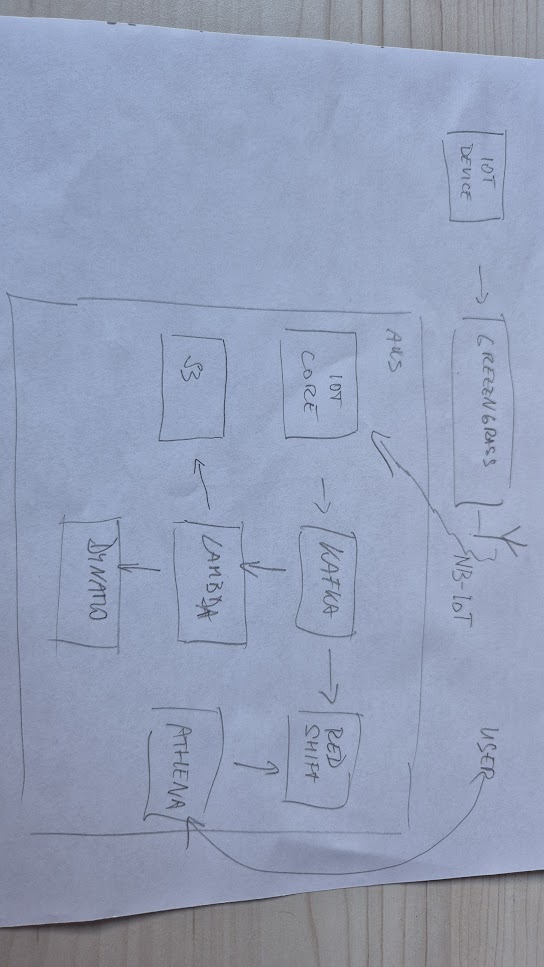 IOT
DEVICE
GREENGRASS
NB-IOT
USER
AWS
IOT
CORE
KAFKA
RED
SHIFT
S3
LAMBDA
ATHENA
DYNAMO